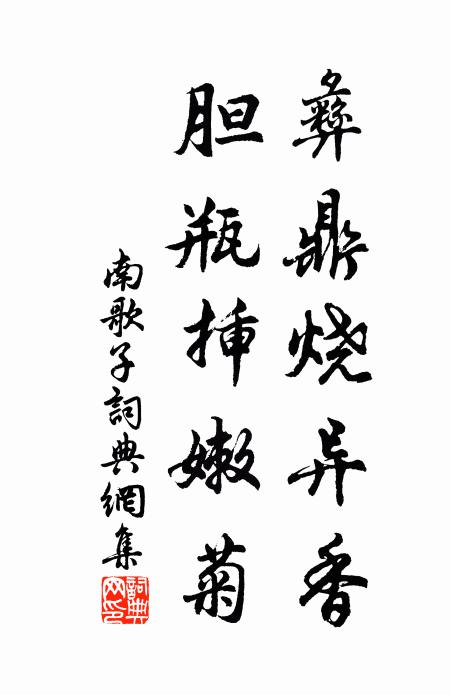 彝鼎烧异香
胆瓶插嫩菊
南歌子詞典網集
詞典网印